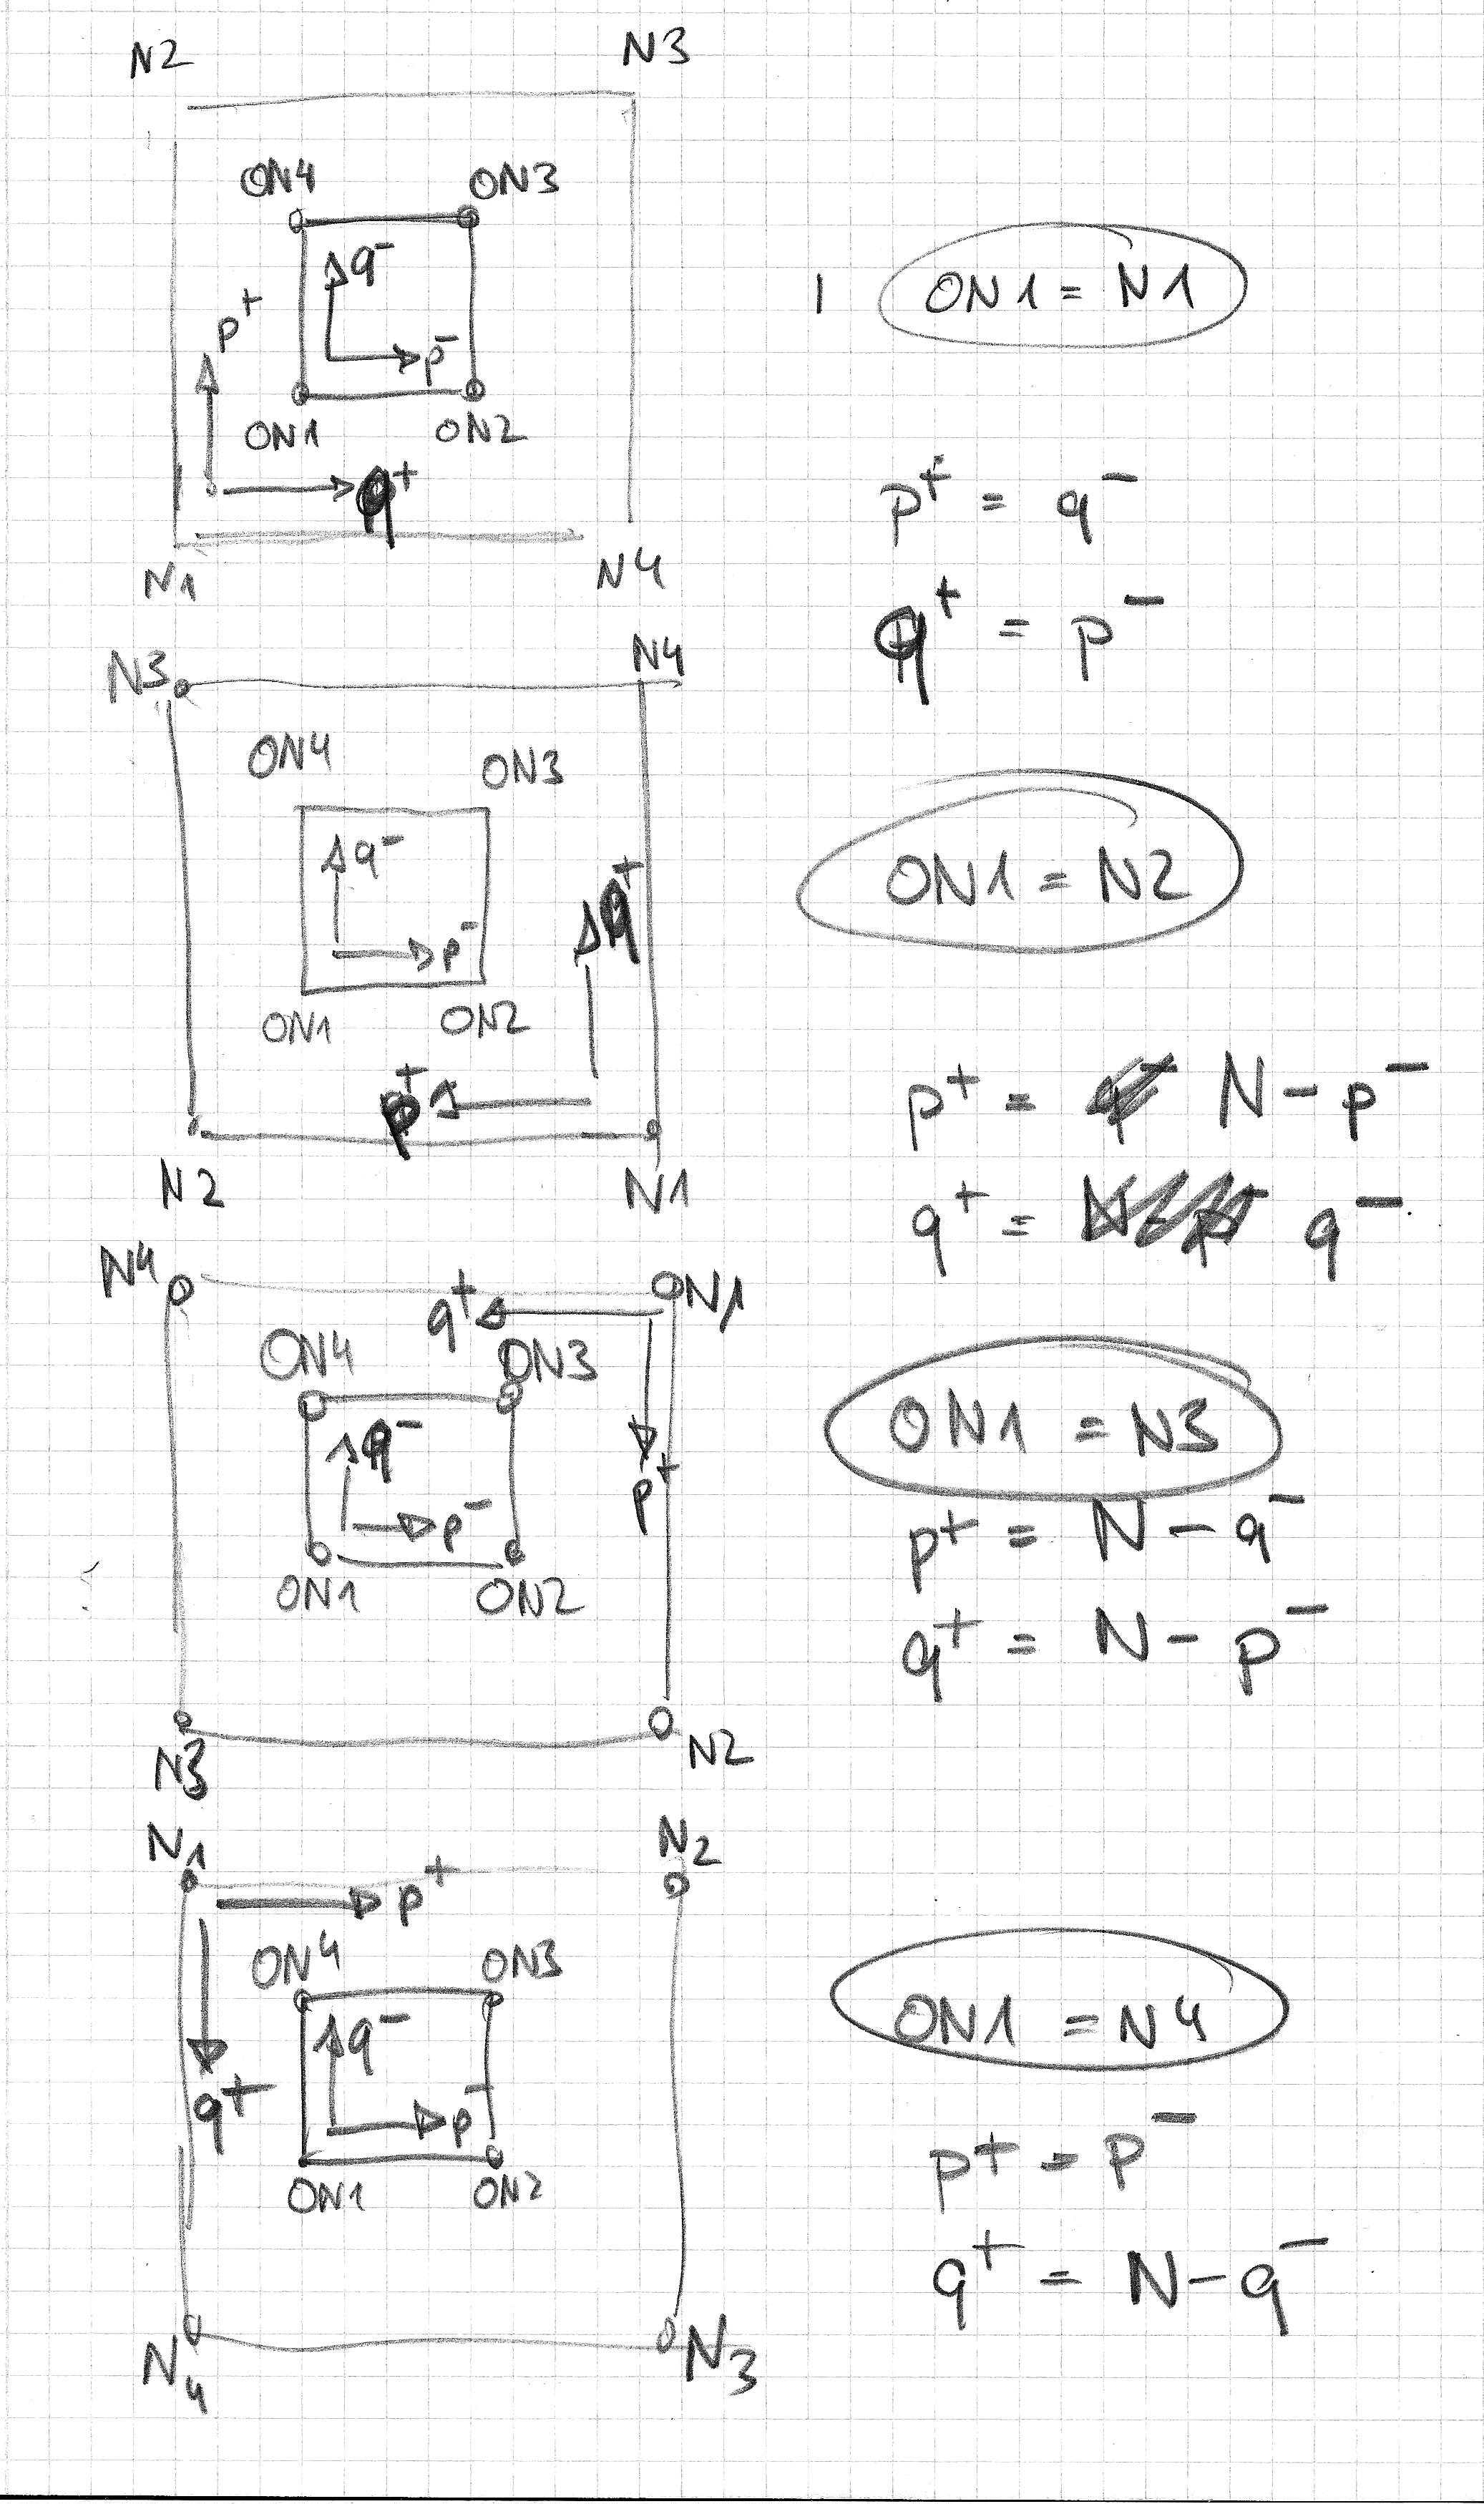 N2 N3
ON4 ON3
q⁻
p⁺
p⁻
ON1 ON2
q⁺
N1 N4
1 ON1 = N1
p⁺ = q⁻
q⁺ = p⁻
N3 N4
ON4 ON3
q⁻
q⁺
p⁻
ON1 ON2
p⁺
N2 N1
ON1 = N2
p⁺ = N - p⁻
q⁺ = q⁻
N4 N1
q⁺
ON4 ON3
q⁻
p⁺
p⁻
ON1 ON2
N3 N2
ON1 = N3
p⁺ = N - q⁻
q⁺ = N - p⁻
N1 N2
p⁺
ON4 ON3
q⁻
q⁺
p⁻
ON1 ON2
N4 N3
ON1 = N4
p⁺ = p⁻
q⁺ = N - q⁻